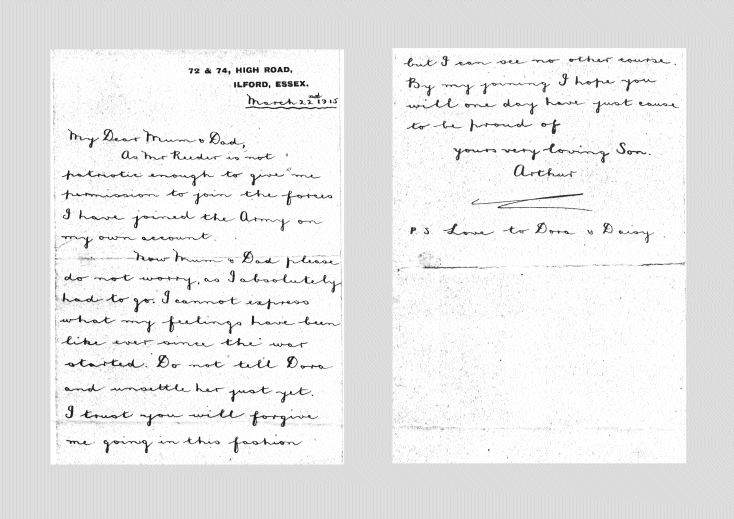 72 & 74, HIGH ROAD,
ILFORD, ESSEX.
March 22nd 1915
My Dear Mum & Dad,
As Mr Reeder is not
patriotic enough to give me
permission to join the forces
I have joined the Army on
my own account.
Now Mum & Dad please
do not worry, as I absolutely
had to go. I cannot express
what my feelings have been
like ever since the war
started. Do not tell Dora
and unsettle her just yet.
I trust you will forgive
me going in this fashion
but I can see no other course.
By my joining I hope you
will one day have just cause
to be proud of
yours very loving Son.
Arthur
P.S. Love to Dora & Daisy